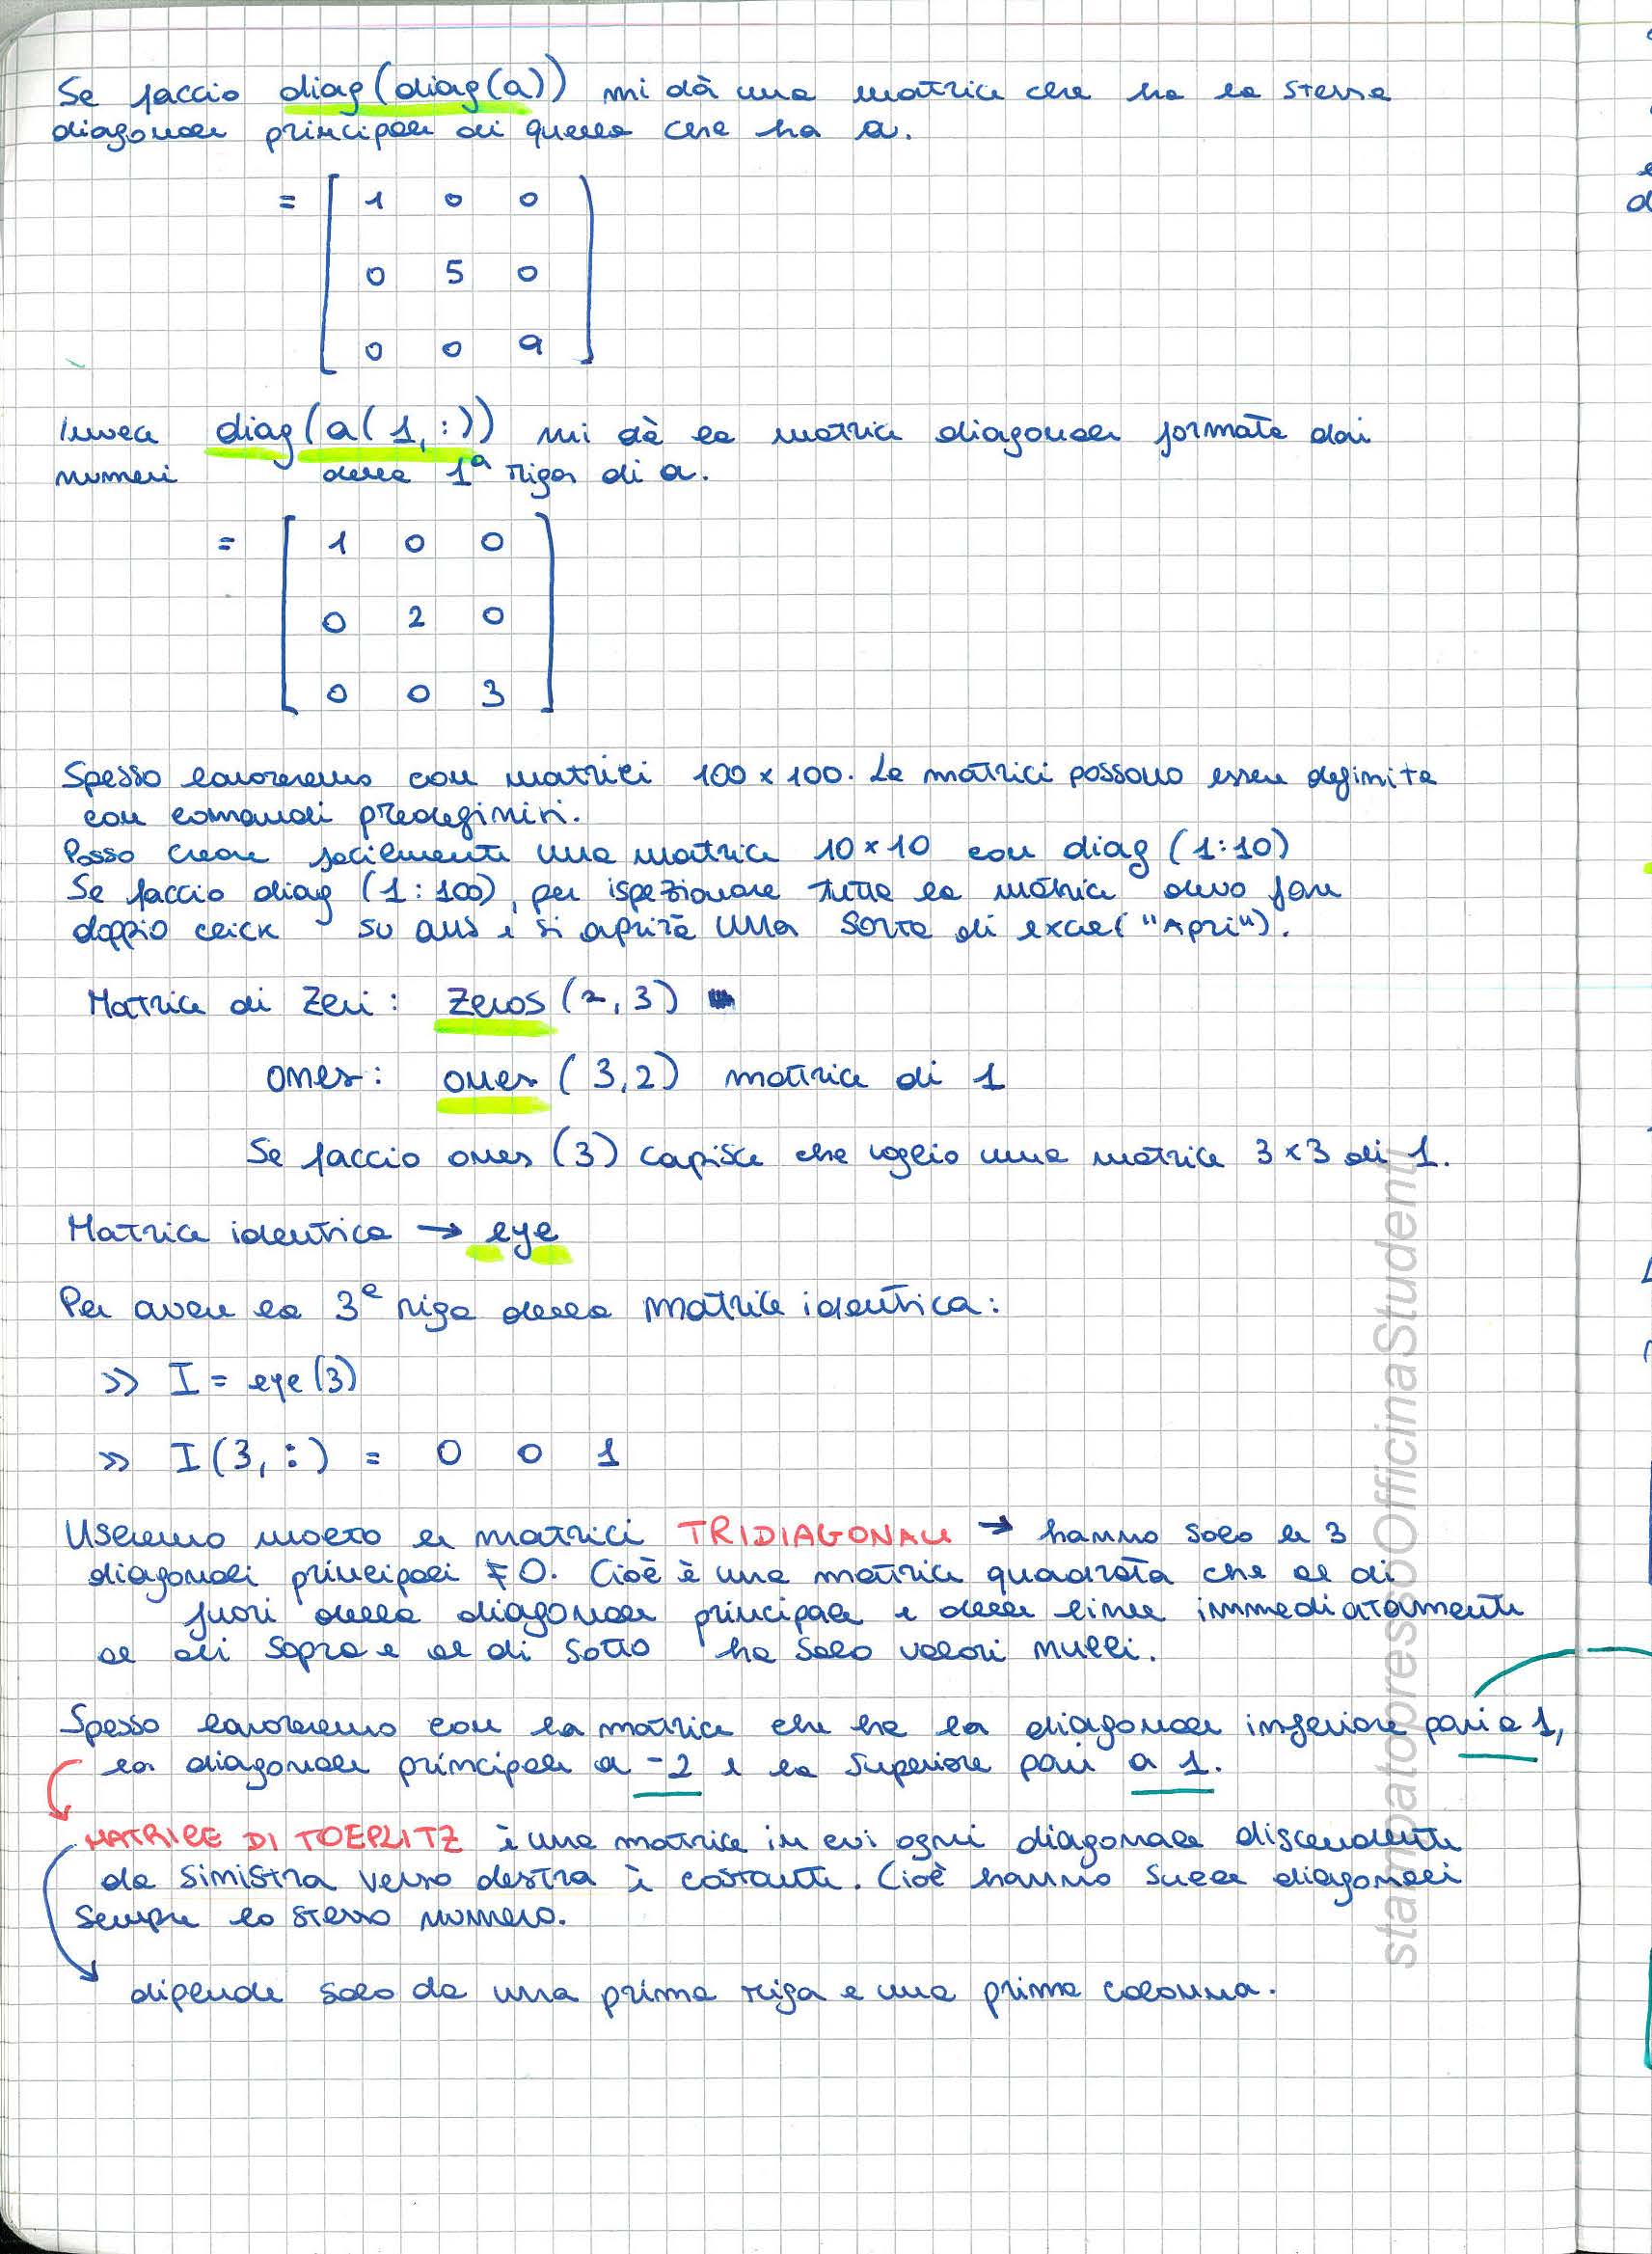 Se faccio diag(diag(a)) mi dà una matrice che ha la stessa
diagonale principale di quella che ha a.
= [ 1 0 0
0 5 0
0 0 9 ]
Invece diag(a(1,:)) mi dà la matrice diagonale formata dai
numeri della 1ª riga di a.
= [ 1 0 0
0 2 0
0 0 3 ]
Spesso lavoreremo con matrici 100 x 100. Le matrici possono essere definite
con comandi predefiniti.
Posso creare facilmente una matrice 10 x 10 con diag (1:10)
Se faccio diag (1:100), per ispezionare tutta la matrice devo fare
doppio click su ans e si aprirà una sorta di excel ("Apri").
Matrice di zeri: zeros (2,3)
ones: ones (3,2) matrice di 1
Se faccio ones (3) capisce che voglio una matrice 3 x 3 di 1.
Matrice identica → eye
Per avere la 3ª riga della matrice identica:
>> I = eye(3)
>> I(3,:) = 0 0 1
Useremo molto le matrici TRIDIAGONALI → hanno solo le 3
diagonali principali ≠ 0. Cioè è una matrice quadrata che al di
fuori della diagonale principale e delle linee immediatamente
al di sopra e al di sotto ha solo valori nulli.
Spesso lavoreremo con la matrice che ha la diagonale inferiore pari a 1,
la diagonale principale a -2 e la superiore pari a 1.
MATRICE DI TOEPLITZ è una matrice in cui ogni diagonale discendente
da sinistra verso destra è costante. Cioè hanno sulle diagonali
sempre lo stesso numero.
dipende solo da una prima riga e una prima colonna.
stampatopressoOfficinaStudenti